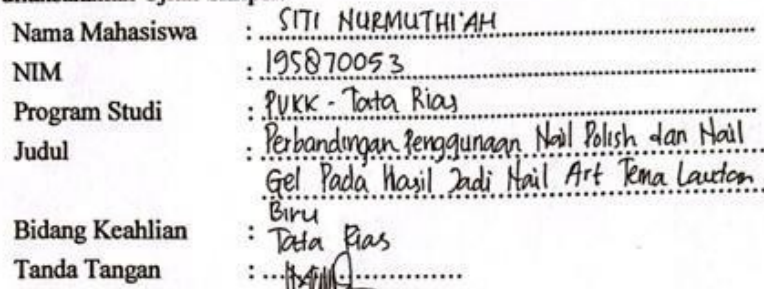 Nama Mahasiswa : SITI NURMUTHI'AH
NIM : 195870053
Program Studi : PVKK - Tata Rias
Judul : Perbandingan Penggunaan Nail Polish dan Nail
Gel Pada Hasil Jadi Nail Art Tema Lautan
Biru
Bidang Keahlian : Tata Rias
Tanda Tangan :